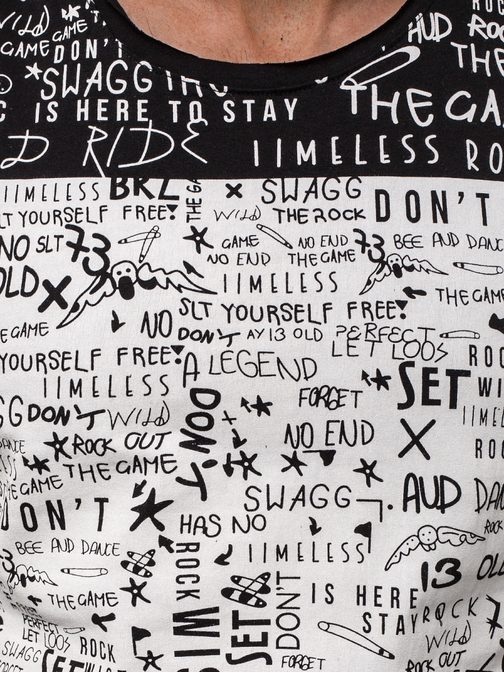 ROCK
WILD
GAME DON'T
HUD ROCK
SWAGG
THE GAME
IS HERE TO STAY
THE GA
RIDE
IIMELESS RO
IIMELESS BRZ
SWAGG
LT YOURSELF FREE!
THE GA
WILD THE ROCK DON'T
NO SLT 73
GAME NO END 73 BEE AND DANCE
NO END THE GAME
OLD
IIMELESS
THE GAME
SLT YOURSELF FREE!
THE GAME
NO DON'T AY 13 OLD PERFECT
LET LOOS ROCK
YOURSELF FREE!
A LEGEND
IIMELESS
FORGET
SET
GG DON'T WILD
DON'T
NO END
ROCK OUT
THE GAME
GAME
SWAGG
AUD DANCE
ON'T
HAS NO
BEE AND DANCE
ROCK
IIMELESS
13 OLD
DON'T
IS HERE
THE GAME
STAY ROCK
SET
WILD
PERFECT
LET LOOS ROCK
SWAGG
FORGET